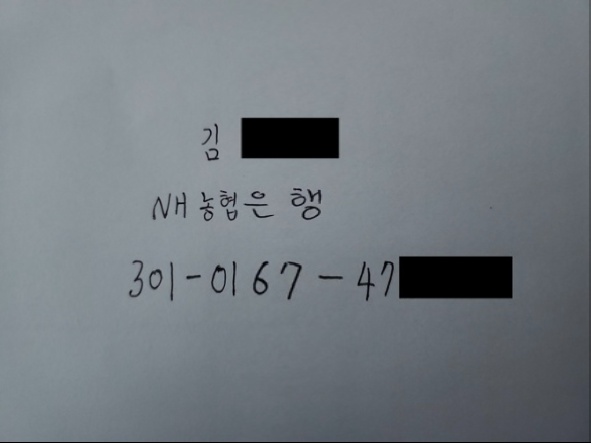 김
NH 농협은행
301-0167-47